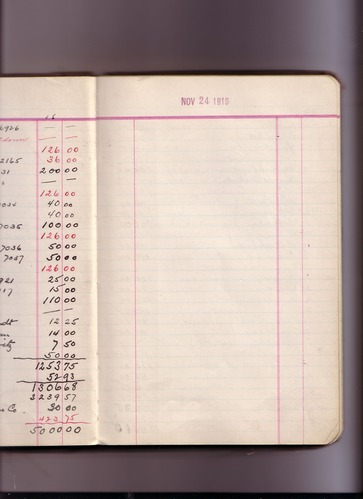 NOV 24 1919
6926 — —
126 00
2165 36 00
31 200 00
— —
126 00
7034 40 00
40 00
7035 100 00
126 00
7036 50 00
7037 50 00
126 00
921 25 00
117 15 00
110 00
— —
12 25
14 00
7 50
50 00
1253 75
52 93
1306 68
3239 57
Co 30 00
423 75
5000 00